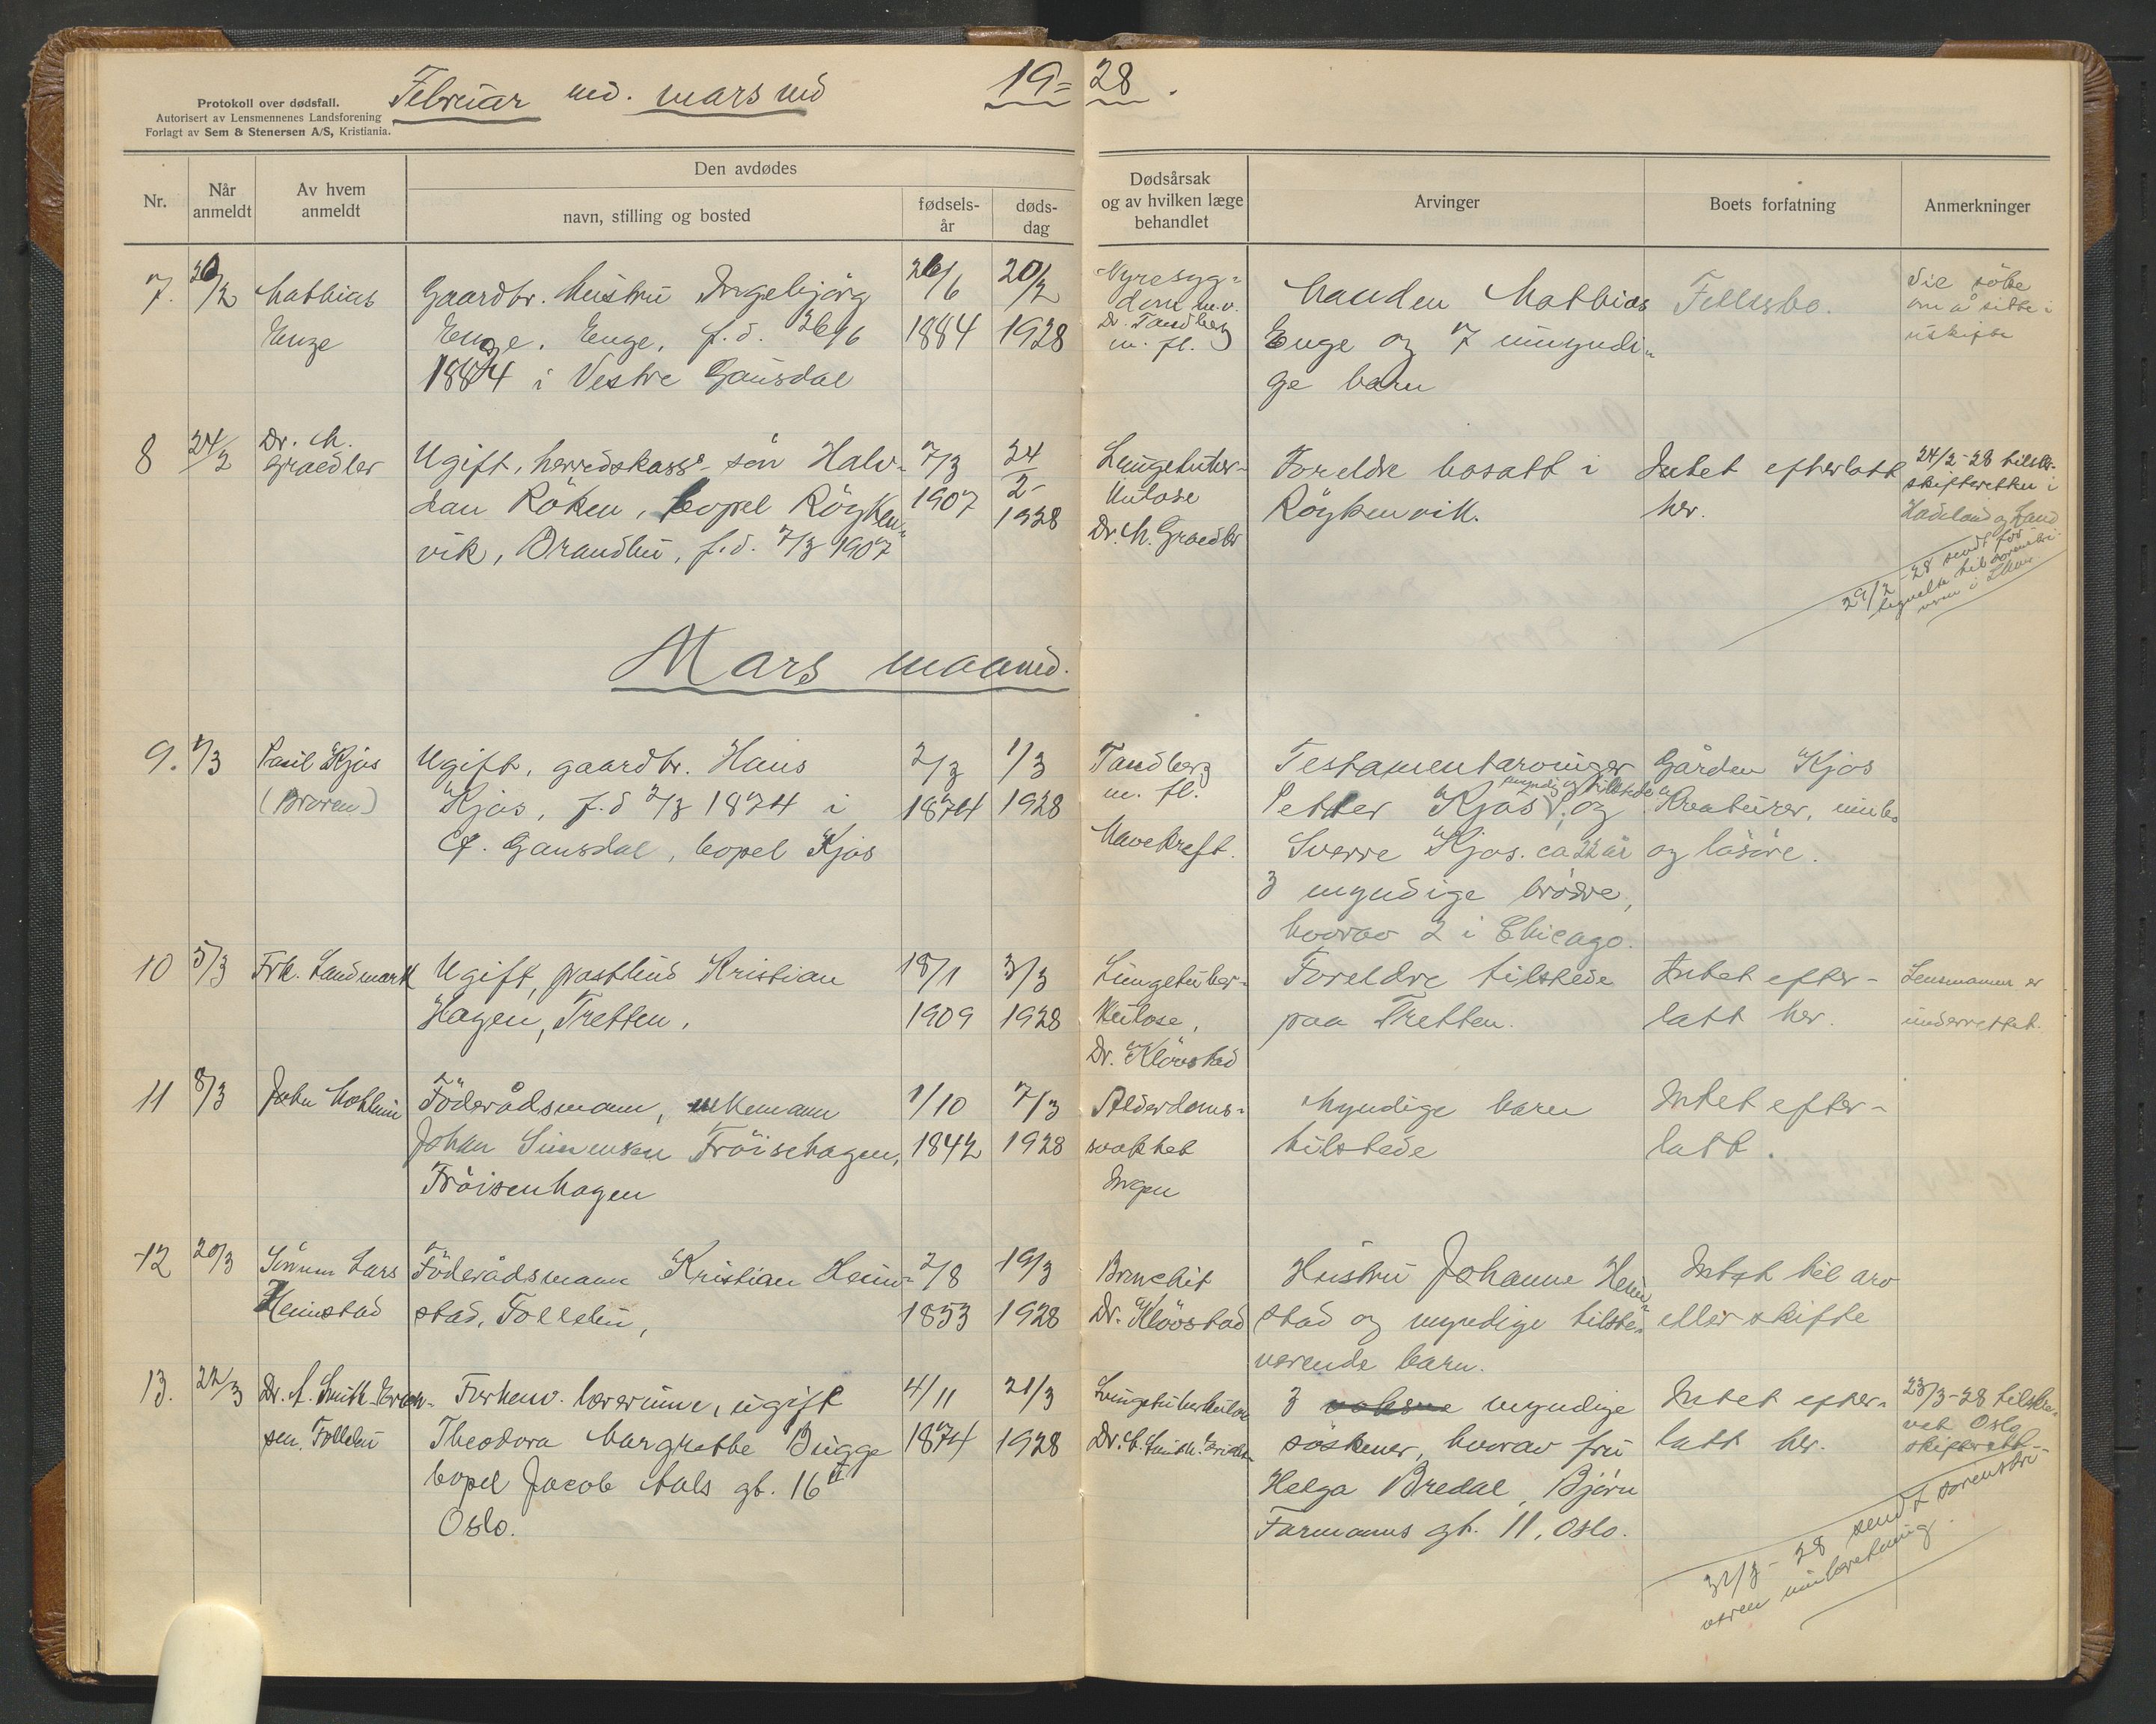 Februar md. mars md 19=28.
Protokoll over dødsfall.
Autorisert av Lensmennenes Landsforening
Forlagt av Sem & Stenersen A/S, Kristiania.
Nr.
Når
anmeldt
Av hvem
anmeldt
Den avdødes
navn, stilling og bosted
fødsels-
år
døds-
dag
Dødsårsak
og av hvilken læge
behandlet
Arvinger
Boets forfatning
Anmerkninger
7.
/2
Mathias
Enge
Gaardbr. hustru Ingebjörg
Enge, Enge, f.d. 26/6
1884 i Vestre Gausdal
26/6
1884
20/2
1928
Nyresyg=
dom m.v.
Dr. Tandberg
m. fl.
Manden Mathias
Enge og 7 umyndi-
ge barn
Fellesbo.
Vil söke
om å sitte i
uskifte
8
24/2
Dr. M.
Graedler
Ugift, herredskass. sön Halv-
dan Röken, bopel Röyken-
vik, Brandbu, f.d. 7/3 1907
7/3
1907
24
2-
1928
Lungetuber-
kulose
Dr. M. Graedler
Foreldre bosatt i
Röykenvik.
Intet efterlatt
her.
24/2-28 tilskr.
skifteretten i
Hadeland og Land
29/2-28 sendt for
i Lhmr
Mars maaned.
9.
1/3
Paul Kjos
(Broren)
Ugift, gaardbr. Hans
Kjos, f.d 2/3 1874 i
Ö. Gausdal, bopel Kjos
2/3
1874
1/3
1928
Tandberg
m. fl.
Mavekreft.
Testamentarvinger
myndig og tilstede
Petter Kjos, og
Sverre Kjos. ca 22 år
3 myndige brödre,
hvorav 2 i Chicago.
Gården Kjos
Kreaturer, innbo
og lösöre.
10
5/3
Frk. Landmark
Ugift, postbud Kristian
Hagen, Tretten.
18/1
1909
3/3
1928
Lungetuber-
kulose,
Dr. Klövstad
Foreldre tilstede
paa Tretten.
Intet efter-
latt her.
Lensmannen er
underrettet.
11
8/3
John
Föderådsmann, enkemann
Johan Simensen Fröisehagen,
Fröisenhagen
1/10
1842
7/3
1928
Alderdoms-
svakhet
Ingen
Myndige barn
tilstede
Intet efter-
latt.
12
20/3
Sönnen Lars
Heimstad
Föderådsmann Kristian Heim-
stad, Follebu,
2/8
1853
19/3
1928
Bronchit
Dr. Klövstad
Hustru Johanne Heim-
stad og myndige tilste-
verende barn.
Intet til arv
eller skifte
13.
22/3
Dr. A. Smith
sen. Follebu
Forhenv. lærerinne, ugift
Theodora Margrethe Bugge
bopel Jacob Aals gt. 16 II
Oslo.
4/11
1874
21/3
1928
Lungetuberkulose
Dr. Smith
3 voksne myndige
söskener, hvorav fru
Helga Bredal, Björn
Farmanns gt. 11, Oslo.
Intet efter-
latt her.
23/3-28 tilskre-
vet Oslo
skifterett
31/3-28 sendt sorenskri-
veren innberetning.